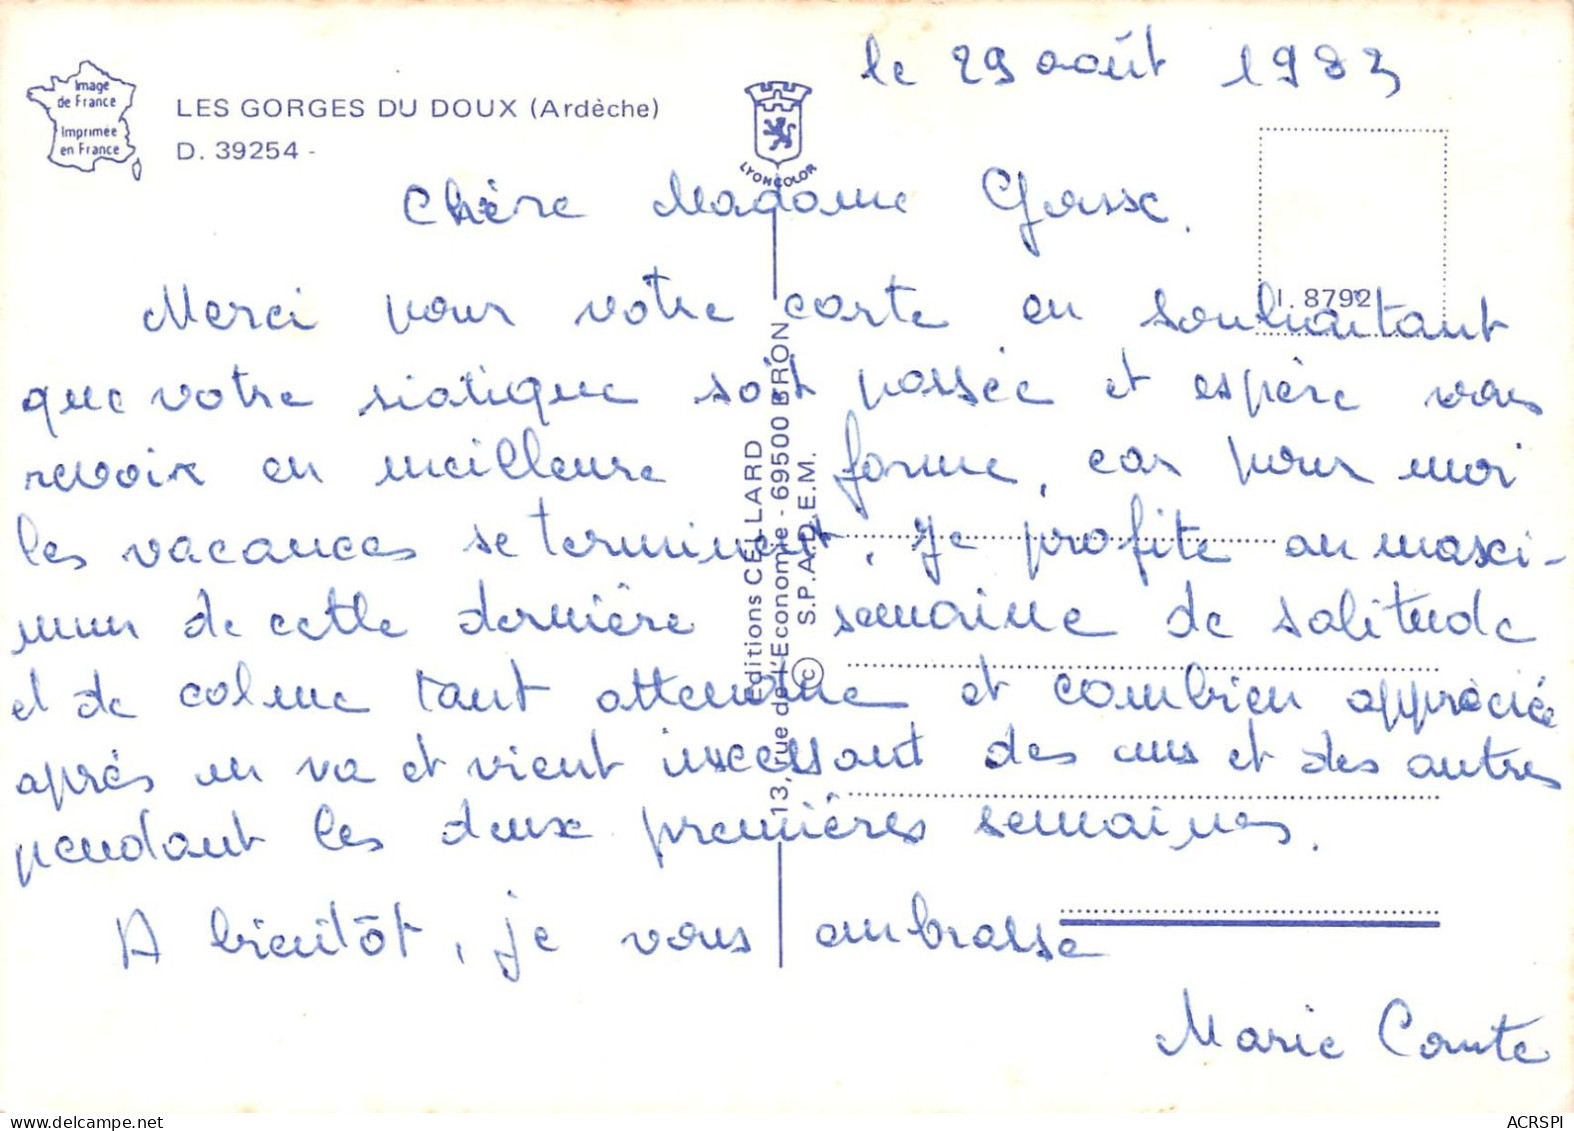 le 29 août 1983
Image
de France
Imprimée
en France
LES GORGES DU DOUX (Ardèche)
D. 39254 -
LYONCOLOR
I. 8792
Chère Madame Gosse.
Merci pour votre carte en souhaitant
que votre siatique soit passée et espère vous
revoir en meilleure forme, car pour moi
les vacances se terminent. Je profite au maxi-
mum de cette dernière semaine de solitude
et de calme tant attendue et combien appréciée
après un va et vient incessant des uns et des autres
pendant les deux premières semaines.
A bientôt, je vous embrasse
Marie Comte
Editions CELLARD
13, rue de l'Economie - 69500 BRON
© S.P.A.D.E.M.
www.delcampe.net
ACRSPI